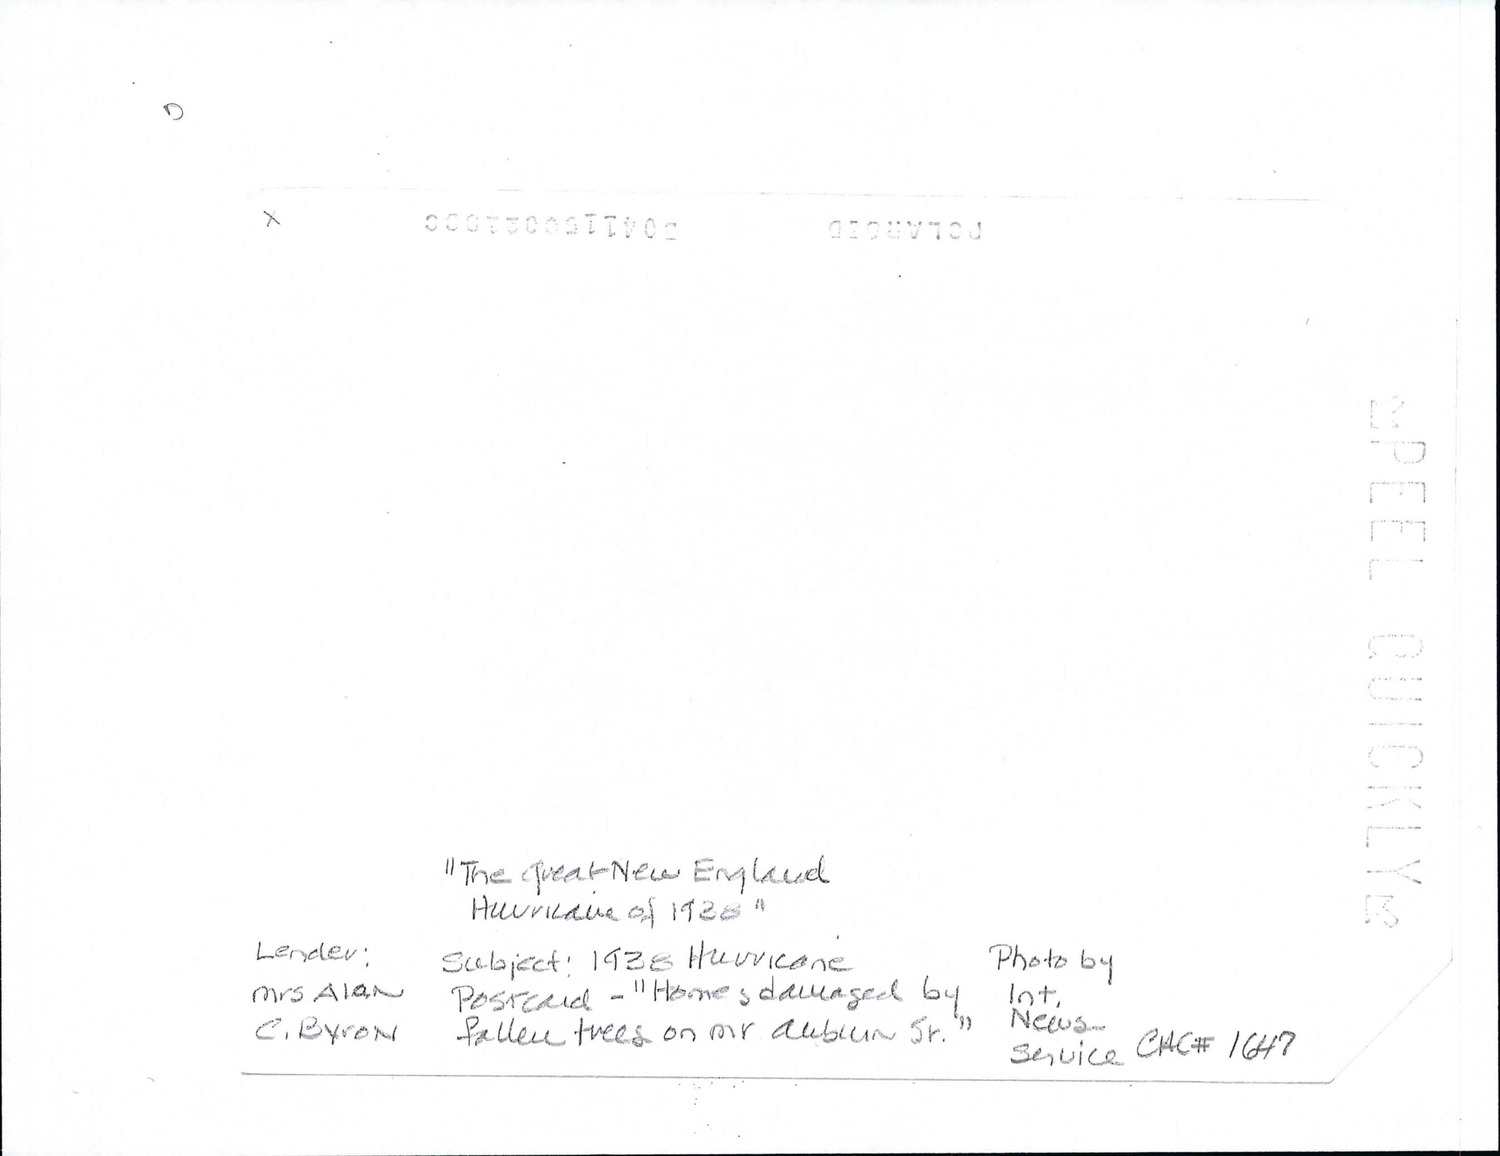 POLAROID
PEEL QUICKLY
"The great New England
Hurricane of 1938"
Lender:
Mrs Alan
C. Byron
Subject: 1938 Hurricane
Postcard - "Homes damaged by
fallen trees on Mt Auburn St."
Photo by
Int.
News
Service
CHC# 1647